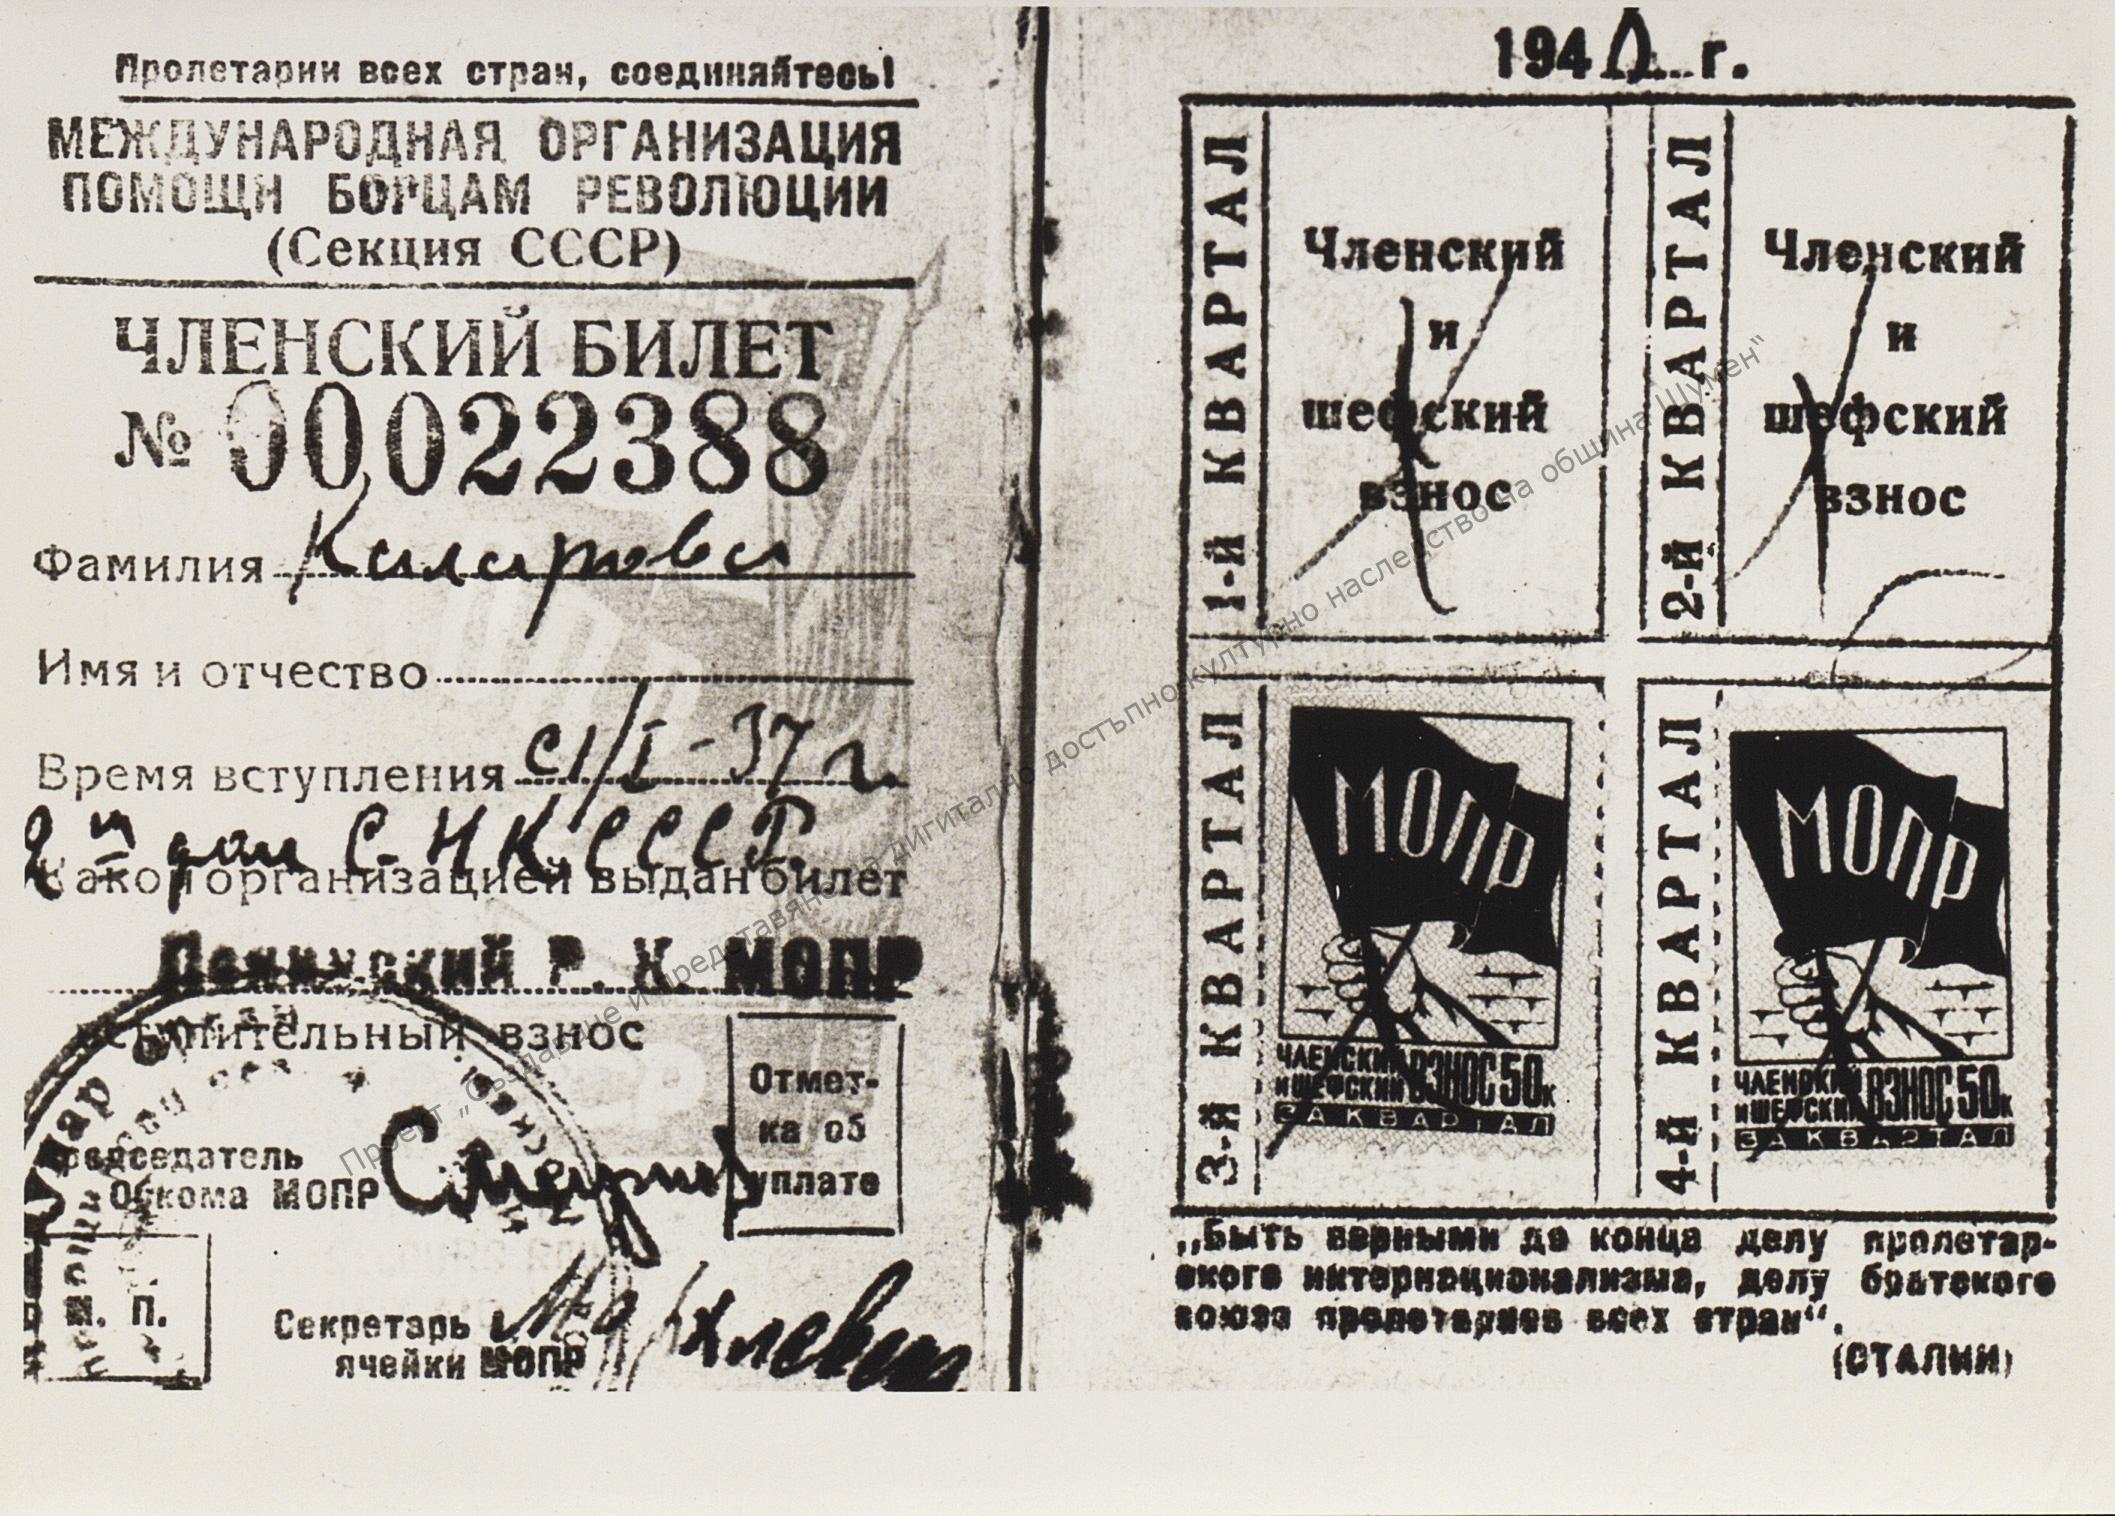 Пролетарии всех стран, соединяйтесь!
МЕЖДУНАРОДНАЯ ОРГАНИЗАЦИЯ
ПОМОЩИ БОРЦАМ РЕВОЛЮЦИИ
(Секция СССР)
ЧЛЕНСКИЙ БИЛЕТ
№ 00022388
Фамилия
Имя и отчество
Время вступления с 1/I-37 г.
2й дом С.Н.К. СССР.
Какой организацией выдан билет
Ленинский Р. К. МОПР
Вступительный взнос
Отмет-
ка об
уплате
Председатель
Обкома МОПР
М. П.
Секретарь
ячейки МОПР
1940 г.
1-й КВАРТАЛ
Членский
и
шефский
взнос
2-й КВАРТАЛ
Членский
и
шефский
взнос
3-й КВАРТАЛ
МОПР
ЧЛЕНСКИЙ И ШЕФСКИЙ ВЗНОС 50к
ЗА КВАРТАЛ
4-й КВАРТАЛ
МОПР
ЧЛЕНСКИЙ И ШЕФСКИЙ ВЗНОС 50к
ЗА КВАРТАЛ
„Быть верными до конца делу пролетар-
ского интернационализма, делу братского
союза пролетариев всех стран“.
(СТАЛИН)
Проект „Създаване и представяне на дигитално достъпно културно наследство на община Шумен“